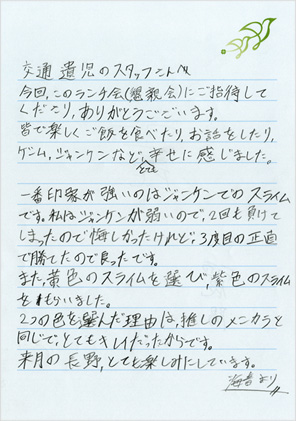 交通遺児のスタッフさんへ
今回、このランチ会(懇親会)にご招待して
くださり、ありがとうございます。
皆で楽しくご飯を食べたり、お話をしたり、
ゲーム、ジャンケンなど、とても幸せに感じました。
一番印象が強いのはジャンケンでのスライム
です。私はジャンケンが弱いので、2回も負けて
しまったので悔しかったけれど、3度目の正直
で勝てたので良ったです。
また、黄色のスライムを選び、紫色のスライム
をもらいました。
2つの色を選んだ理由は、推しのメンカラと
同じで、とてもキレイだったからです。
来月の長野、とても楽しみにしています。
より